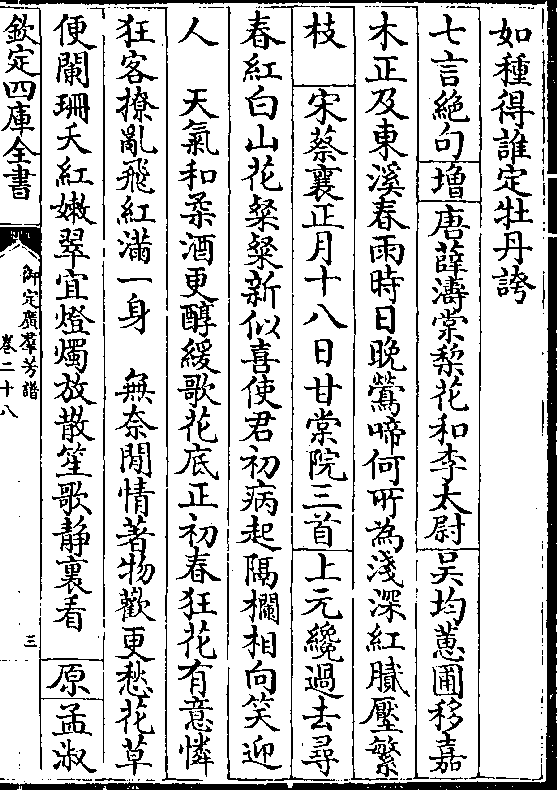 如種得誰定牡丹誇
七言絶句增唐薛濤棠梨花和李太尉吴均蕙圃移嘉
木正及東溪春雨時日晚鶯啼何所為淺深紅膩壓繁
枝　宋蔡襄正月十八日甘棠院三首上元纔過去尋
春紅白山花粲粲新似喜使君初病起隔欄相向笑迎
人　天氣和柔酒更醇緩歌花底正初春狂花有意憐
狂客撩亂飛紅滿一身　無奈閒情著物歡更愁花草
便闌珊夭紅嫩翠宜燈燭放散笙歌静裏看　原孟淑
欽定四庫全書
御定廣羣芳譜
卷二十八
三